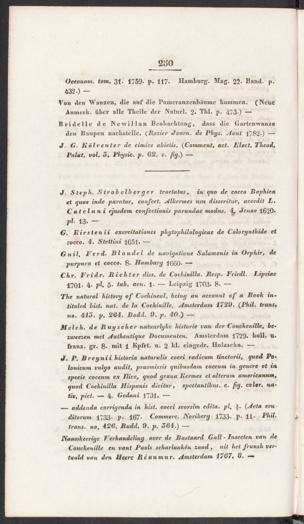 230
Oeconom. tom. 31. 1759. p. 117. Hamburg. Mag. 22. Band. p.
432.) —
Von den Wanzen, die auf die Pomeranzenbäume kommen. (Neue
Anmerk. über alle Theile der Naturl. 2. Thl. p. 473.) —
Bridelle de Newillan Beobachtung, dass die Gartenwanze
den Raupen nachstelle. (Rozier Journ. de Phys. Aout 1782.) —
J. G. Kölreuter de cimice abietis. (Comment. act. Elect. Theod.
Palat. vol. 3. Physic. p. 62. c. fig.) —
J. Steph. Strobelberger tractatus, in quo de cocco Baphica
et quae inde paratur, confect. Alkermes usu disseritur, accedit L.
Catelani ejusdem confectionis parandae modus. 4. Jenae 1620.
pl. 13. —
G. Kirstenii exercitationes phytophilologicae de Colocynthide et
cocco. 4. Stettini 1651. —
Guil. Ferd. Blondel de navigatione Salamonis in Orphir, de
purpura et cocco. 8. Homburg 1660. —
Chr. Fridr. Richter diss. de Cochinilla. Resp. Friedl. Lipsiae
1701. 4. pl. 5. tab. aen. 1. — Leipzig 1703. 8. —
The natural history of Cochineal, being an account of a Book in-
tituled hist. nat. de la Cochinille, Amsterdam 1729. (Phil. trans.
no. 413. p. 264. Badd. 9. p. 40.) —
Melch. de Ruyscher natuurlyke historie van der Couchenille, be-
weezen met Authentique Documenten. Amsterdam 1729. holl. u.
franz. gr. 8. mit 1 Kpfrt. u. 2 kl. eingedr. Holzschn. —
J. P. Breynii historia naturalis cocci radicum tinctorii, quod Po-
lonicum vulgo audit, praemissis quibusdam coccum in genere et in
specie coccum ex Ilice, quod grana Kermes et alterum americanum,
quod Cochinilla Hispanis dicitur, spectantibus. c. fig. color. na-
tiv. pict. — 4. Gedani 1731. —
— addenda corrigenda in hist. cocci seorsim edita. pl. ½. (Acta eru-
ditorum 1733. p. 167. Commerc. Noriberg 1733. p. 11. Phil.
trans. no. 426. Badd. 9. p. 364.) —
Naauwkeurige Verhandeling over de Bastaard Gall-Insecten van de
Couchenille en vant Pools scharlaaken zaad, uit het fransh ver-
taald van den Heere Réaumur. Amsterdam 1767. 8. —